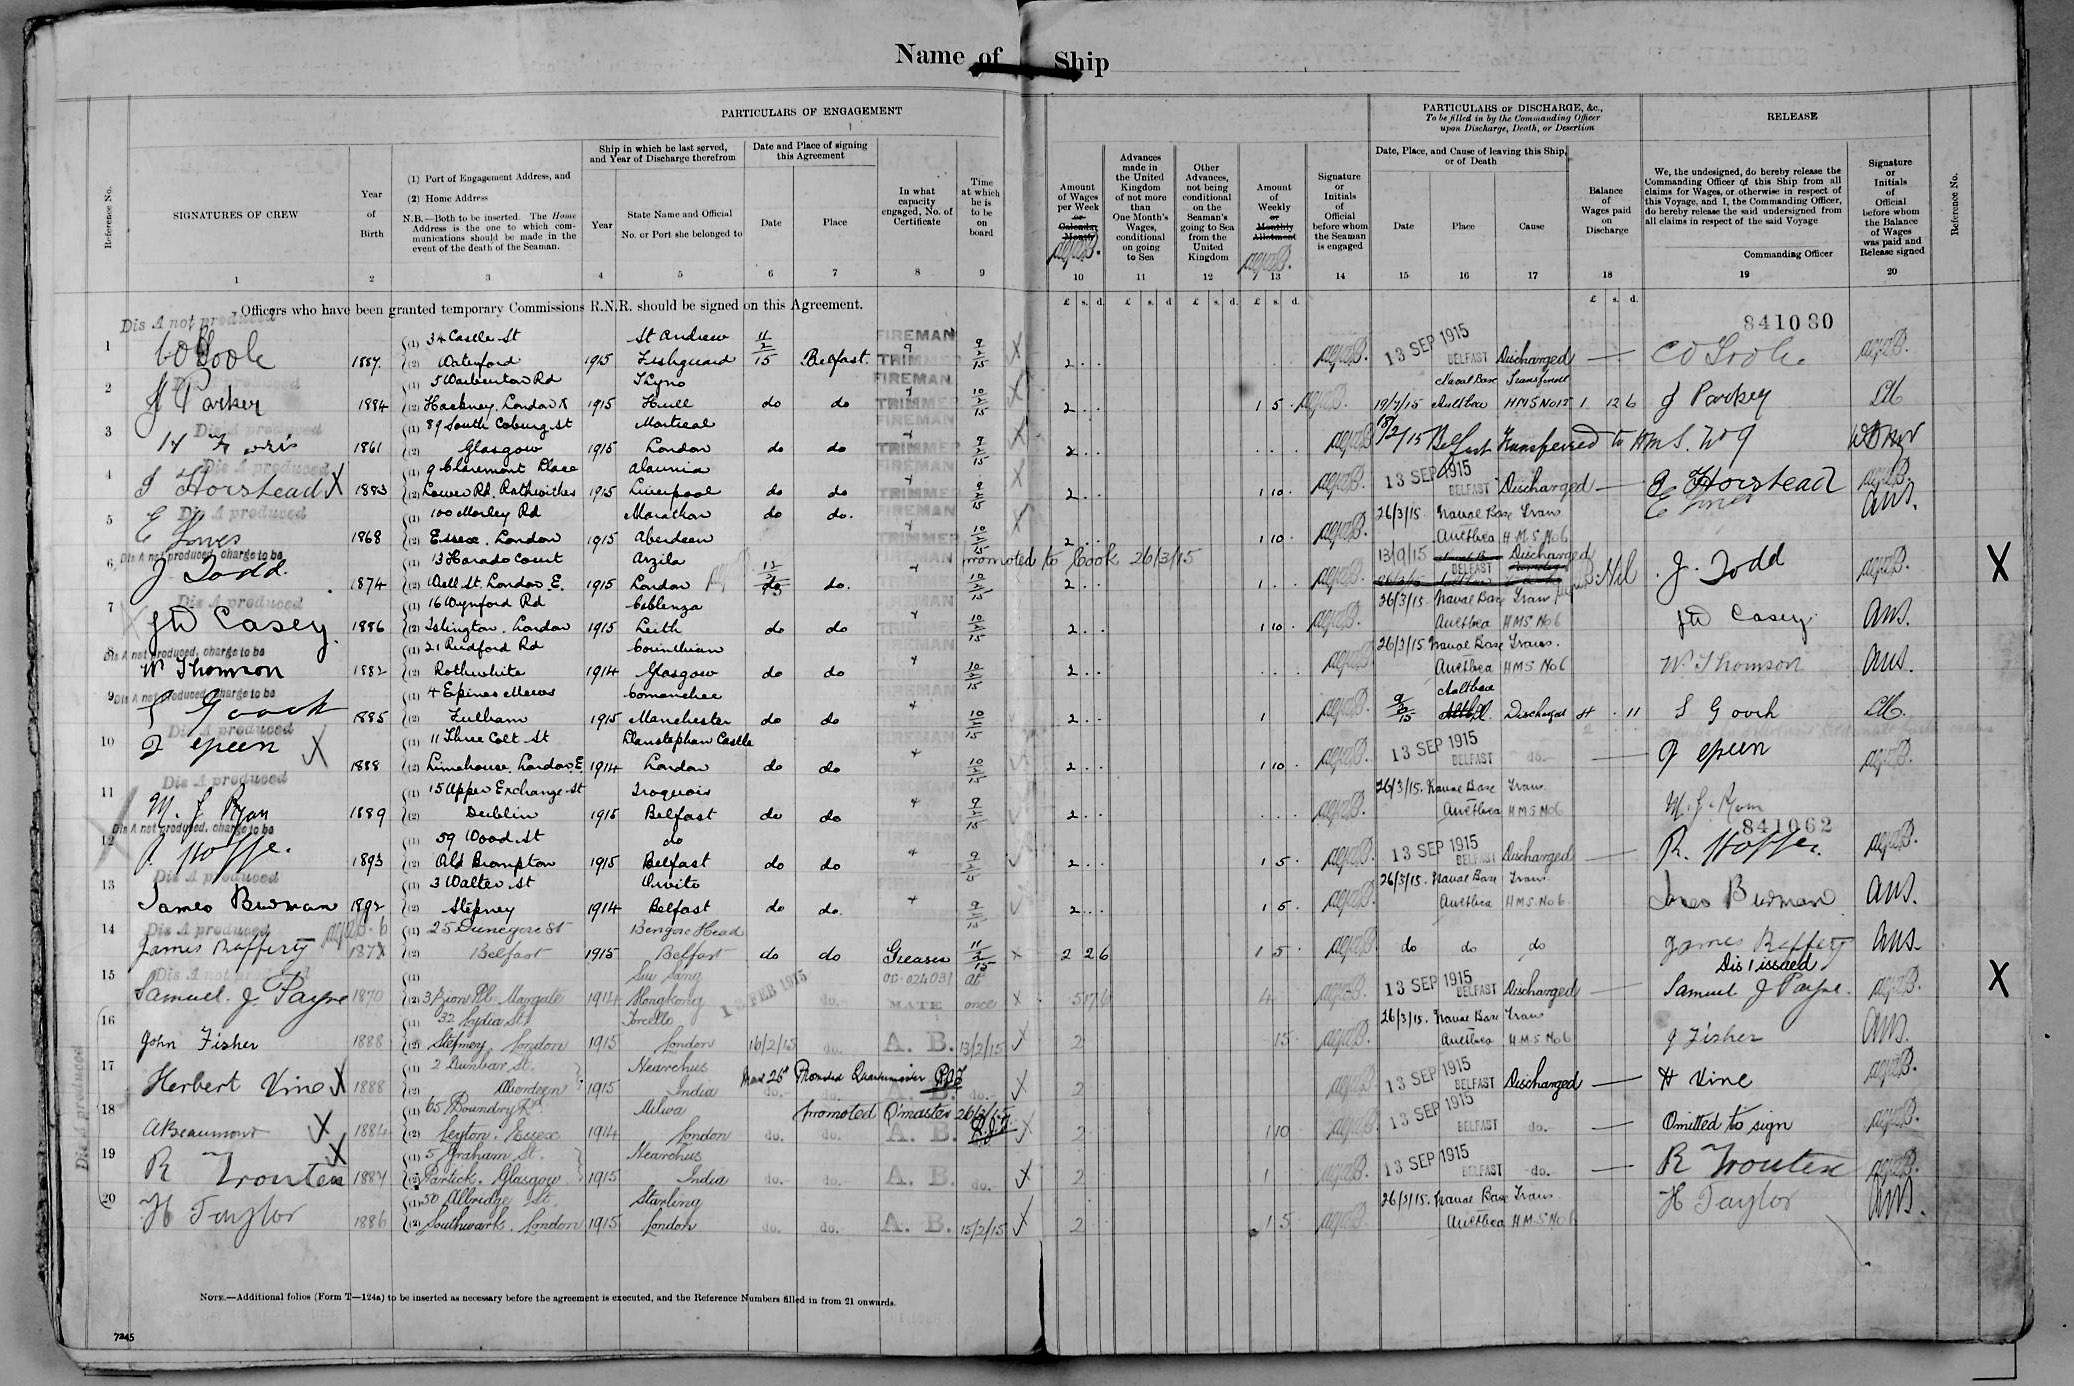 Name of Ship
PARTICULARS OF ENGAGEMENT
PARTICULARS OF DISCHARGE, &c.,
To be filled in by the Commanding Officer
upon Discharge, Death, or Desertion
RELEASE
Reference No.
SIGNATURES OF CREW
Year
of
Birth
(1) Port of Engagement Address, and
(2) Home Address
N.B.—Both to be inserted. The Home
Address is the one to which com-
munications should be made in the
event of the death of the Seaman.
Ship in which he last served,
and Year of Discharge therefrom
Year
State Name and Official
No. or Port she belonged to
Date and Place of signing
this Agreement
Date
Place
In what
capacity
engaged, No. of
Certificate
Time
at which
he is
to be
on
board
Amount
of Wages
per Week
or
Calendar
Month
Advances
made in
the United
Kingdom
of not more
than
One Month's
Wages,
conditional
on going
to Sea
Other
Advances,
not being
conditional
on the
Seaman's
going to Sea
from the
United
Kingdom
Amount
of
Weekly
or
Monthly
Allotment
Signature
or
Initials
of
Official
before whom
the Seaman
is engaged
Date, Place, and Cause of leaving this Ship,
or of Death
Date
Place
Cause
Balance
of
Wages paid
on
Discharge
We, the undersigned, do hereby release the
Commanding Officer of this Ship from all
claims for Wages, or otherwise in respect of
this Voyage, and I, the Commanding Officer,
do hereby release the said undersigned from
all claims in respect of the said Voyage
Commanding Officer
Signature
or
Initials
of
Official
before whom
the Balance
of Wages
was paid and
Release signed
Reference No.
1 2 3 4 5 6 7 8 9 10 11 12 13 14 15 16 17 18 19 20
£ s. d. £ s. d. £ s. d. £ s. d. £ s. d.
Officers who have been granted temporary Commissions R.N.R. should be signed on this Agreement.
841080
Dis A not produced
1 (1) 34 Castle St St Andrew 11/2/15 FIREMAN 9/2/15
1887 (2) Waterford 1915 Fishguard Belfast TRIMMER 2 13 SEP 1915 BELFAST Discharged
2 (1) 5 Warburton Rd Thyno FIREMAN Naval Base Transferred
J Parker 1884 (2) Hackney, London 1915 Hull do do TRIMMER 2 1 5 19/7/15 Aultbea HMS No 15 1 12 6 J Parker
Dis A produced
3 (1) 89 South Coburg St Montreal
1861 (2) Glasgow 1915 London do do TRIMMER 2 Belfast Transferred to HMS. No 9
Dis A produced
4 (1) 9 Claremont Place Alaunia
Horstead X 1883 (2) Lower Rd, Rothwithe 1915 Liverpool do do TRIMMER 2 1 10 13 SEP 1915 BELFAST Discharged Horstead
Dis A produced
5 (1) 100 Morley Rd Marathon do do. 26/3/15 Naval Base Trans
E Jones 1868 (2) Essex, London 1915 Aberdeen 2 1 10 Aultbea HMS No 6 E Jones
Dis A not produced, charge to be
6 (1) 13 Harads Court Arzila promoted to Cook 26/3/15 13/9/15 BELFAST Discharged
J. Todd. 1874 (2) Well St. London E. 1915 London do. 2 1 Nil J. Todd X
Dis A produced
7 (1) 16 Wynford Rd Coblenza 26/3/15. Naval Base Trans
Casey. 1886 (2) Islington, London 1915 Leith do do 2 1 10 Aultbea HMS. No 6 Casey
Dis A not produced, charge to be
8 (1) 21 Rudford Rd Corinthian 26/3/15. Naval Base Trans.
W Thomson 1882 (2) Rothwhite 1914 Glasgow do do 2 Aultbea HMS No 6 W Thomson
Dis A not produced, charge to be
9 (1) 4 Epines Mews Comanchee Aultbea
Gooch 1885 (2) Fulham 1915 Manchester do do 2 1 Discharged 4 11 S Gooch
Dis A produced
10 (1) 11 Three Colt St Llanstephan Castle
X 1888 (2) Limehouse, London E. 1914 London do do 2 1 10 13 SEP 1915 BELFAST do.
Dis A produced
11 (1) 15 Upper Exchange St Iroquois 26/3/15. Naval Base Trans.
M. J. Ryan 1889 (2) Dublin 1915 Belfast do do 2 Aultbea HMS No 6 M. J. Ryan
841062
Dis A not produced, charge to be
12 (1) 59 Wood St do
1893 (2) Old Brompton 1915 Belfast do do 2 1 5 13 SEP 1915 BELFAST Discharged R. Hoffe.
Dis A produced
13 (1) 3 Walter St Orvito 26/3/15. Naval Base Trans.
James Burman 1892 (2) Stepney 1914 Belfast do do. 2 1 5 Aultbea HMS. No 6 James Burman
Dis A produced
14 (1) 25 Dunegore St Bengore Head
James Rafferty (2) Belfast 1915 Belfast do do Greaser 11/2/15 2 2 6 1 5 do do do James Rafferty
Dis A not produced Dis 1 issued
15 (1) Sui Sang OC-024031 at
Samuel. J. Payne 1870 (2) 3 Zion Pl. Margate 1914 Hongkong 13 FEB 1915 do. MATE once 5 17 6 4 13 SEP 1915 BELFAST Discharged Samuel J Payne. X
16 (1) 32 Lydia St. Torcello 26/3/15. Naval Base Trans
John Fisher 1888 (2) Stepney, London 1915 London 16/2/15 do. A. B. 13/2/15 2 15 Aultbea H.M.S No 6 J Fisher
17 (1) 2 Dunbar St. Nearchus Promoted Quartermaster
Herbert Vine X 1888 (2) Aberdeen 1915 India do. 2 13 SEP 1915 BELFAST Discharged H Vine
18 (1) 65 Boundry Rd Milwa promoted Q'master 26/3/15
A Beaumont X 1884 (2) Leyton, Essex 1914 London do. do. A. B. 2 1 10 13 SEP 1915 BELFAST do. Omitted to sign
19 (1) 5 Graham St. Nearchus
R Trouten X 1887 (2) Partick, Glasgow 1915 India do. do. A. B. do. 2 1 13 SEP 1915 BELFAST do. R Trouten
20 (1) 50 Albridge St. Starling 26/3/15. Naval Base Trans
H Taylor 1886 (2) Southwark, London 1915 London do. do. A. B. 15/2/15 2 1 5 Aultbea HMS No 6 H Taylor
Dis A produced
NOTE.—Additional folios (Form T—124a) to be inserted as necessary before the agreement is executed, and the Reference Numbers filled in from 21 onwards.
7245